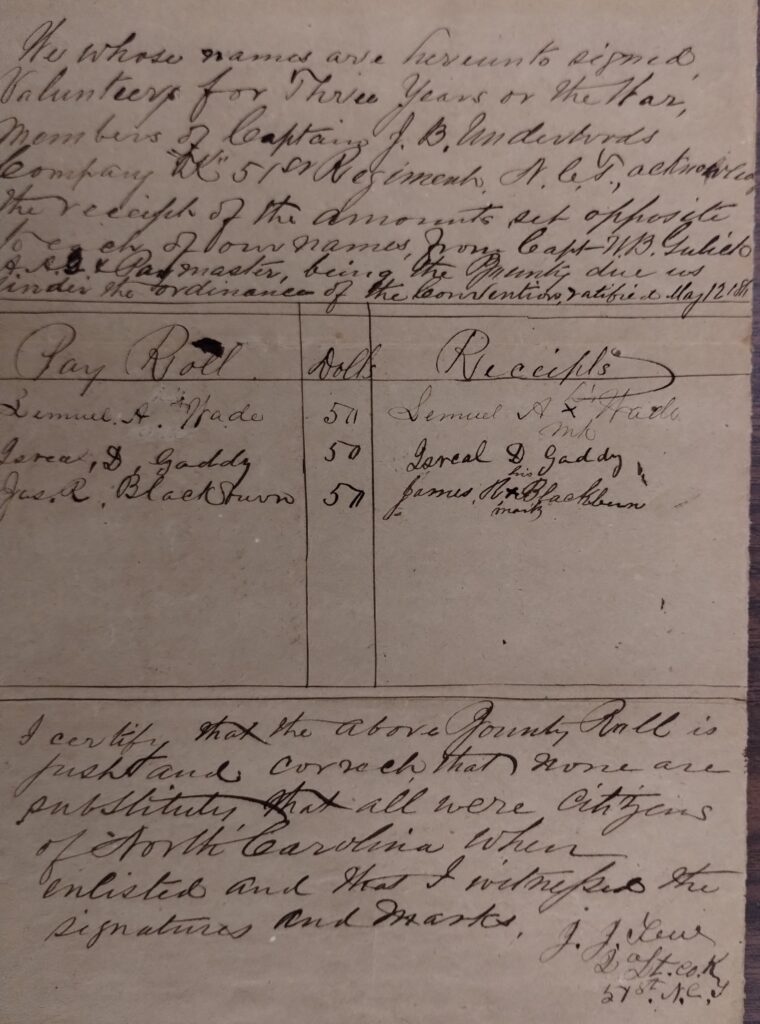 We whose names are hereunto signed,
Volunteers for Three Years or the War,
Members of Captain J. B. Underwoods
Company "K" 51st Regiment, N. C. T.,
the receipt of the amounts set opposite
to each of our names, from Capt W. B. Gulick
A. A. & Paymaster, being the Bounty due us
under the ordinance of the Convention, ratified May 12
Pay Roll Dolls Receipts
Lemuel A. Wade 50 Lemuel A x Wade
mk
Isreal, D, Gaddy 50 Isreal D Gaddy
his
Jas. R. Blackburn 50 James, R x Blackburn
mark
I certify that the above Bounty Roll is
just and correct, that none are
substitutes, that all were Citizens
of North Carolina when
enlisted and that I witnessed the
signatures and marks.
J. J.
Lt. Co. K
51st. N. C. T